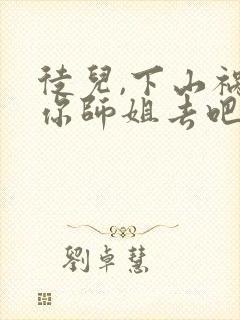 徒兒,下山禍
你師姐去吧
劉卓慧